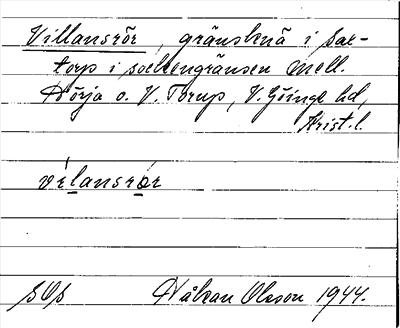 Villansrör, gränsknä i Sax-
torp i sockengränsen mell.
Nörja o. V. Torup, V. Göinge hd,
Krist. l.
vı́lansrör
SOs Håkan Olsson 1944.